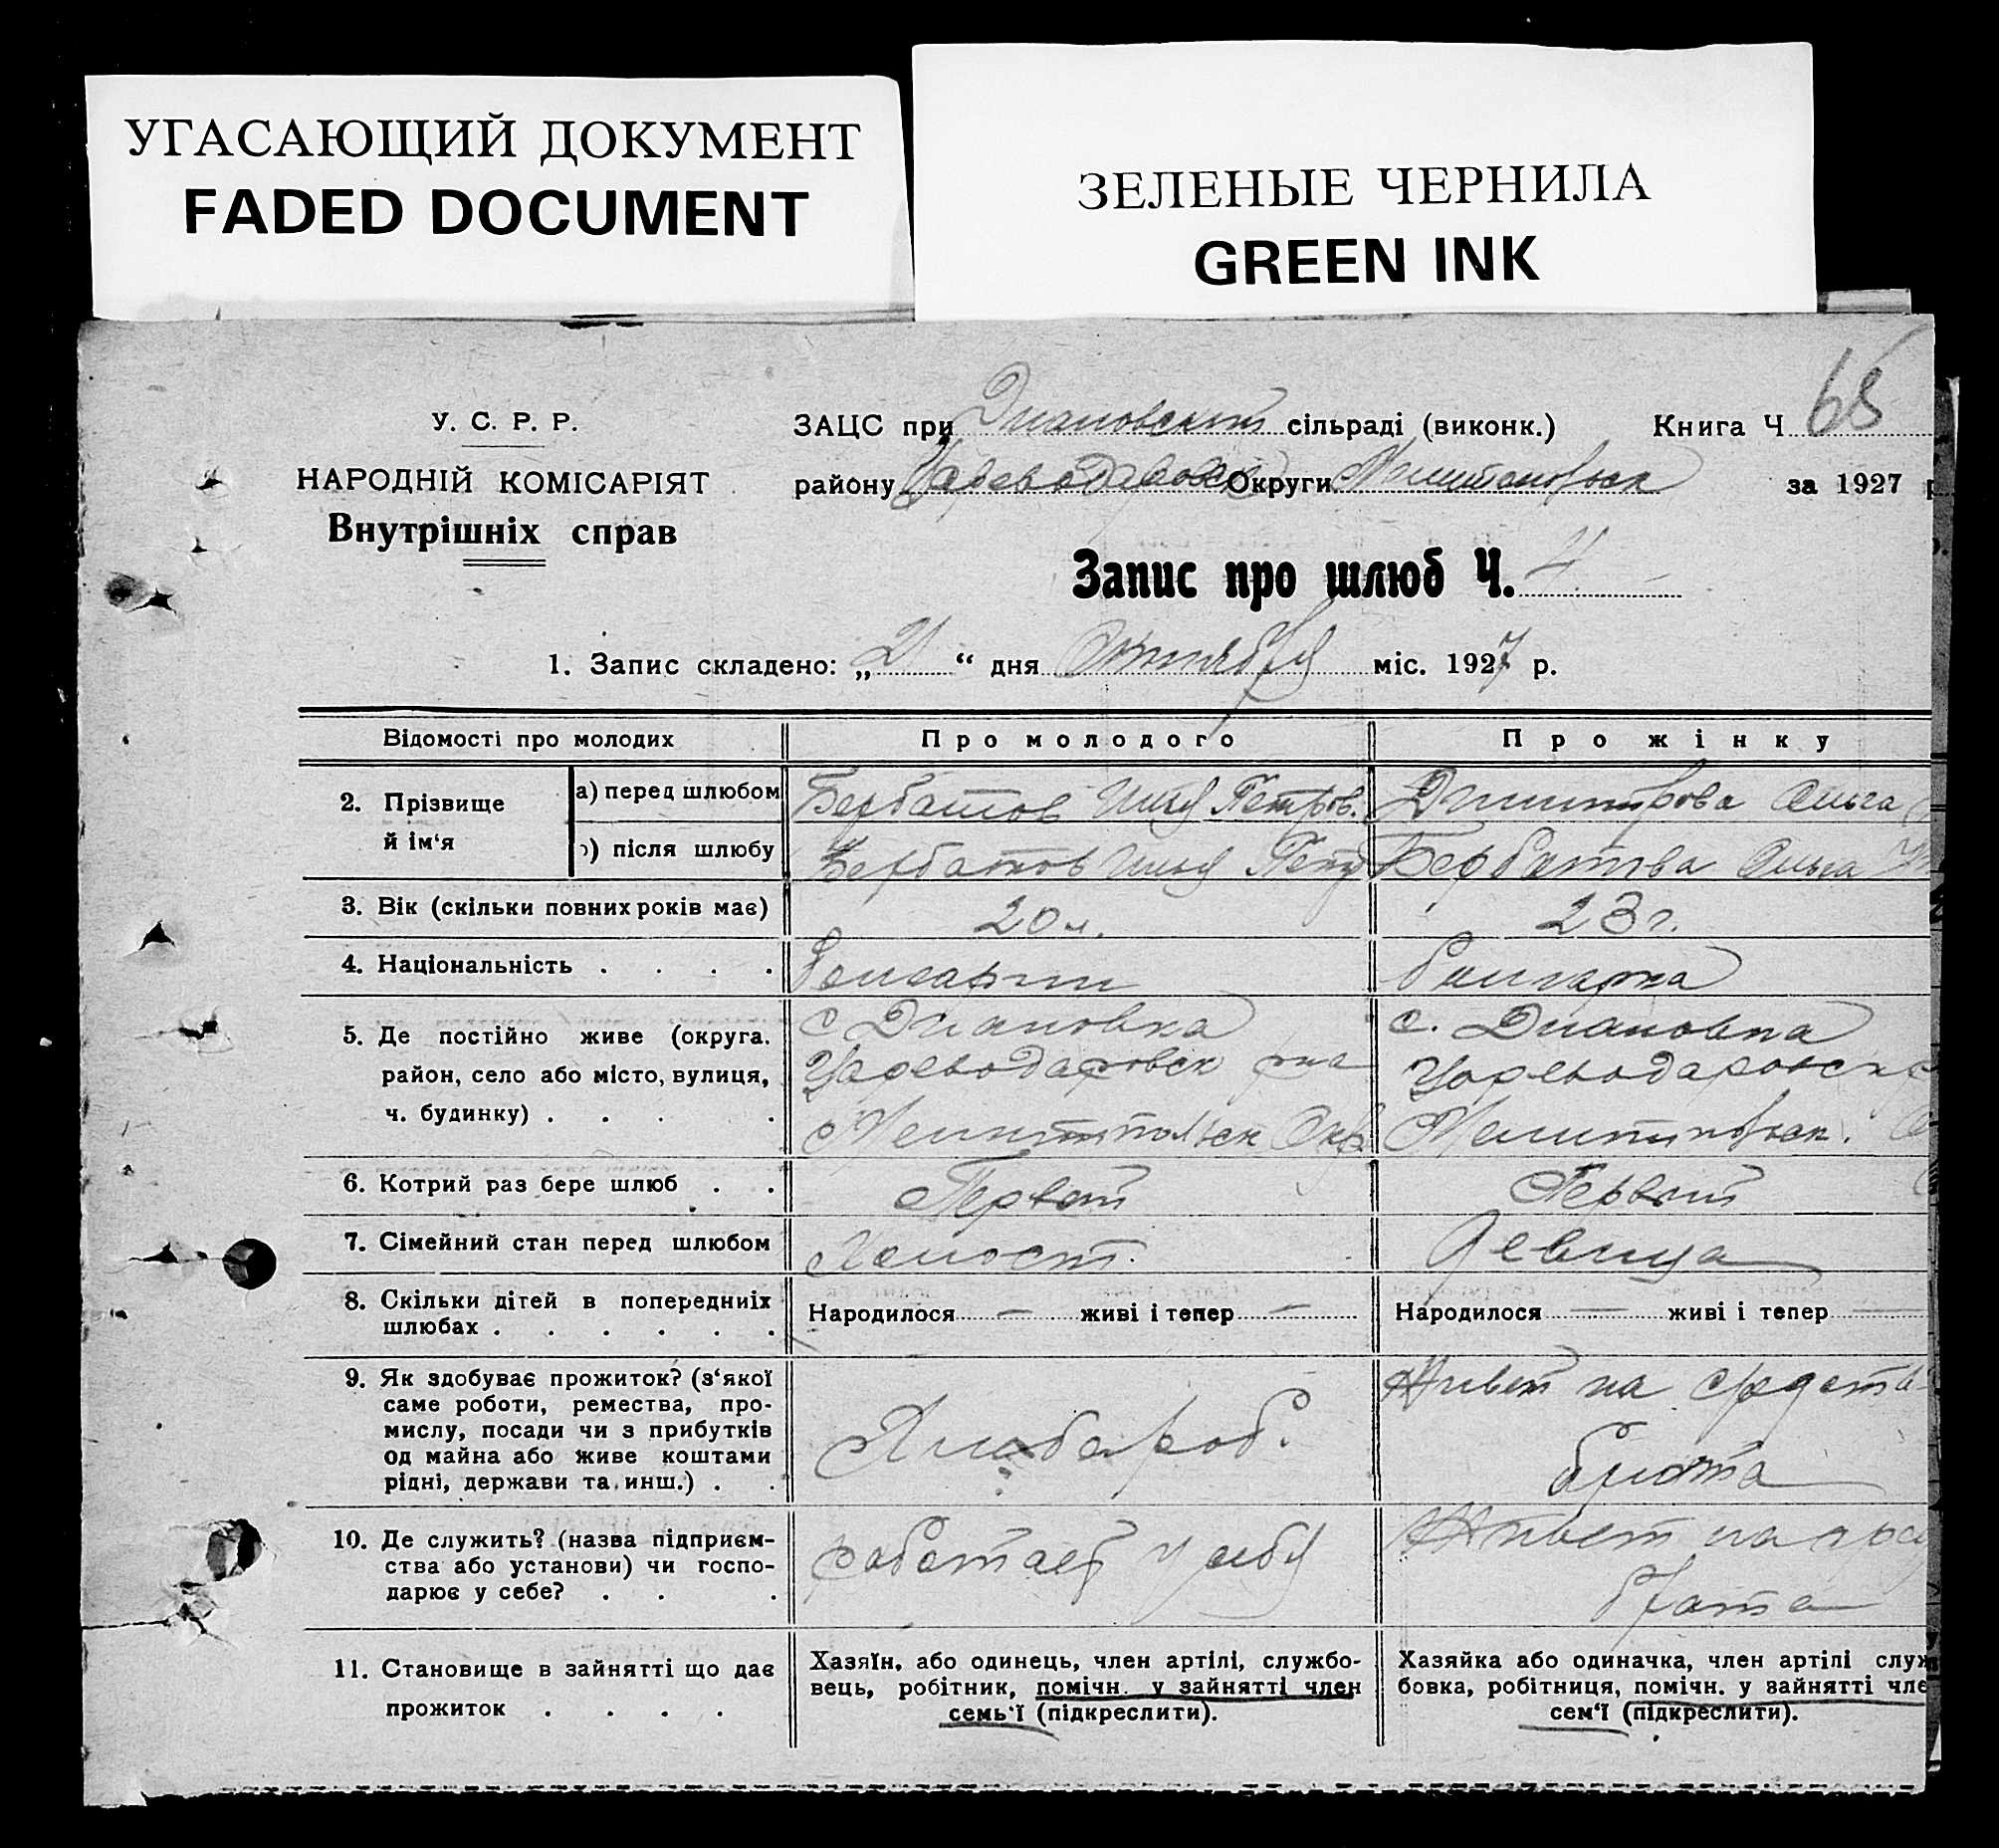 УГАСАЮЩИЙ ДОКУМЕНТ
FADED DOCUMENT
ЗЕЛЕНЫЕ ЧЕРНИЛА
GREEN INK
У. С. Р. Р.
НАРОДНІЙ КОМІСАРІЯТ
Внутрішніх справ
ЗАЦС при Диановский сільраді (виконк.) Книга Ч 68
району Цареводаровск Округи за 1927 р
Запис про шлюб Ч. 4
1. Запис складено: „21“ дня Октября міс. 1927 р.
Відомості про молодих Про молодого Про жінку
2. Прізвище й ім‘я
а) перед шлюбом Бербатов Илья Петров. Димитрова Ольга
) після шлюбу Бербатов Илья Петр Бербатова Ольга
3. Вік (скільки повних років має) 20 л. 23 г.
4. Національність . . . . болгарин болгарка
5. Де постійно живе (округа. район, село або місто, вулиця, ч. будинку) . . . .
с Диановка
Цареводаровск рна
Окр
с. Диановка
Цареводаровск
6. Котрий раз бере шлюб . . Первый Первый
7. Сімейний стан перед шлюбом Холост. Девица
8. Скільки дітей в попередниіх шлюбах . . . . . .
Народилося — живі і тепер — Народилося — живі і тепер
9. Як здобуває прожиток? (з‘якої саме роботи, ремества, промислу, посади чи з прибутків од майна або живе коштами рідні, держави та инш.) . .
Хлебороб.
Живет на средства
брата
10. Де служить? (назва підприємства або установи) чи господарює у себе? . . .
работает у себя
Живет на
брата
11. Становище в зайнятті що дає прожиток . . . .
Хазяїн, або одинець, член артілі, службовець, робітник, помічн. у зайнятті член семь‘ї (підкреслити).
Хазяйка або одиначка, член артілі служ
бовка, робітниця, помічн. у зайнятті чле
сем‘ї (підкреслити).